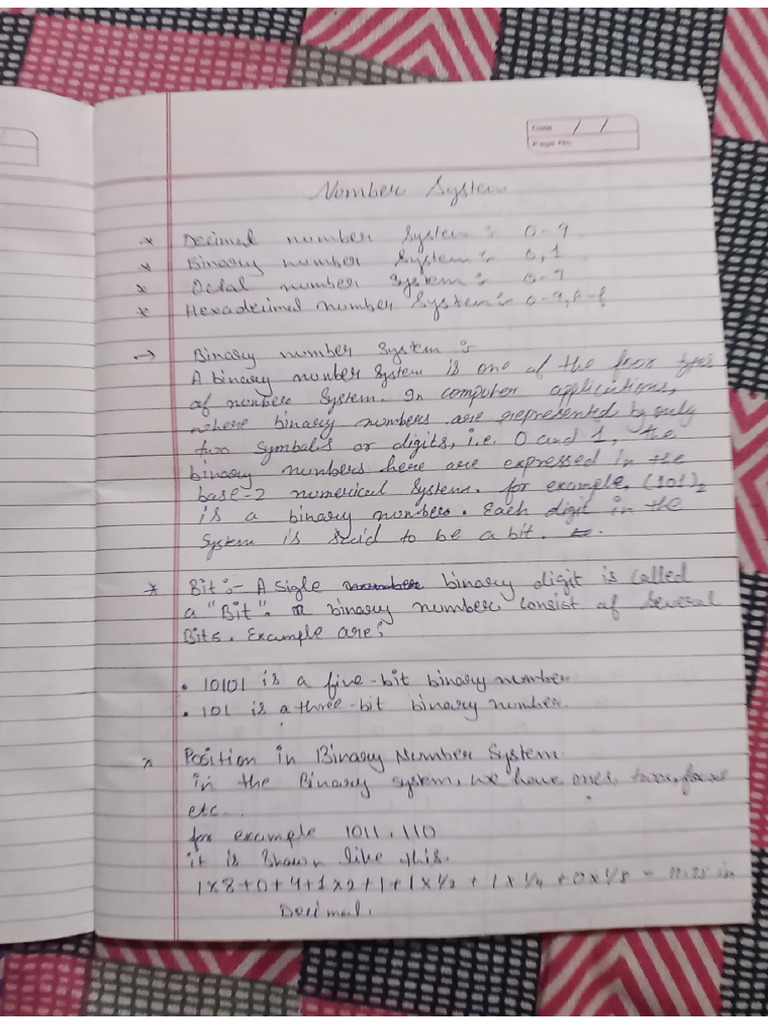 Date / /
Page No.
Number System
* Decimal number System :- 0-9.
* Binary number System :- 0,1
* Octal number System :- 0-9
* Hexadecimal number System :- 0-9, A-f
→ Binary number System :-
A binary number System is one of the four types
of number System. In computer applications,
where binary numbers are represented by only
two symbols or digits, i.e. 0 and 1, the
binary numbers here are expressed in the
base-2 numerical System. for example, (101)2
is a binary number. Each digit in the
System is said to be a bit.
* Bit :- A Sigle binary digit is called
a "Bit". binary number consist of Several
Bits. Example are :
• 10101 is a five-bit binary number
• 101 is a three-bit binary number.
* Position in Binary Number System
in the Binary system, we have ones, twos, fours
etc..
for example 1011.110
it is shown like this.
1x8+0+4+1x2+1+1x1/2+1x1/4+0x1/8 = 11.75 in
Decimal.